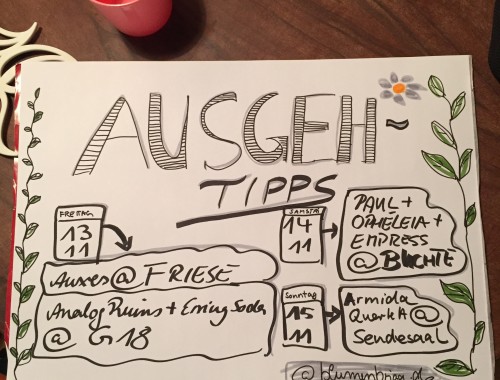 AUSGEH-
TIPPS
FREITAG
13
11
Auxes @ FRIESE
Analog Ruins + Erring Soda
@ G18
SAMSTAG
14
11
PAUL +
OPHELEIA +
EMPRESS
@ BUCHTE
Sonntag
15
11
Armida
Quark A @
Sendesaal